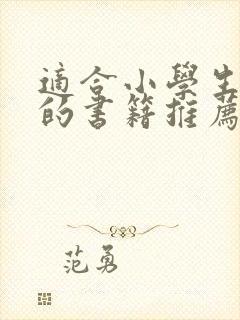 適合小學生
的書籍推薦
范勇